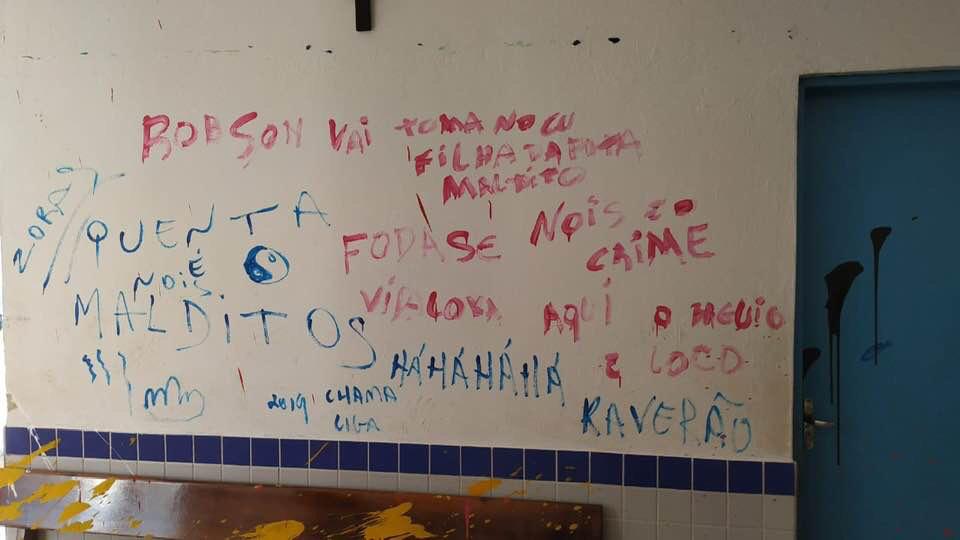 ROBSON VAI TOMA NO CU
FILHA DA PUTA
MALDITO
ZORA
QUENTA
NOIS É
MALDITOS
FODASE
NOIS E O
CRIME
VIDA LOKA
AQUÍ O BEGUIO
E LOCO
HÁHÁHÁHÁ
2019 CHAMA
LIGA
RAVERÃO